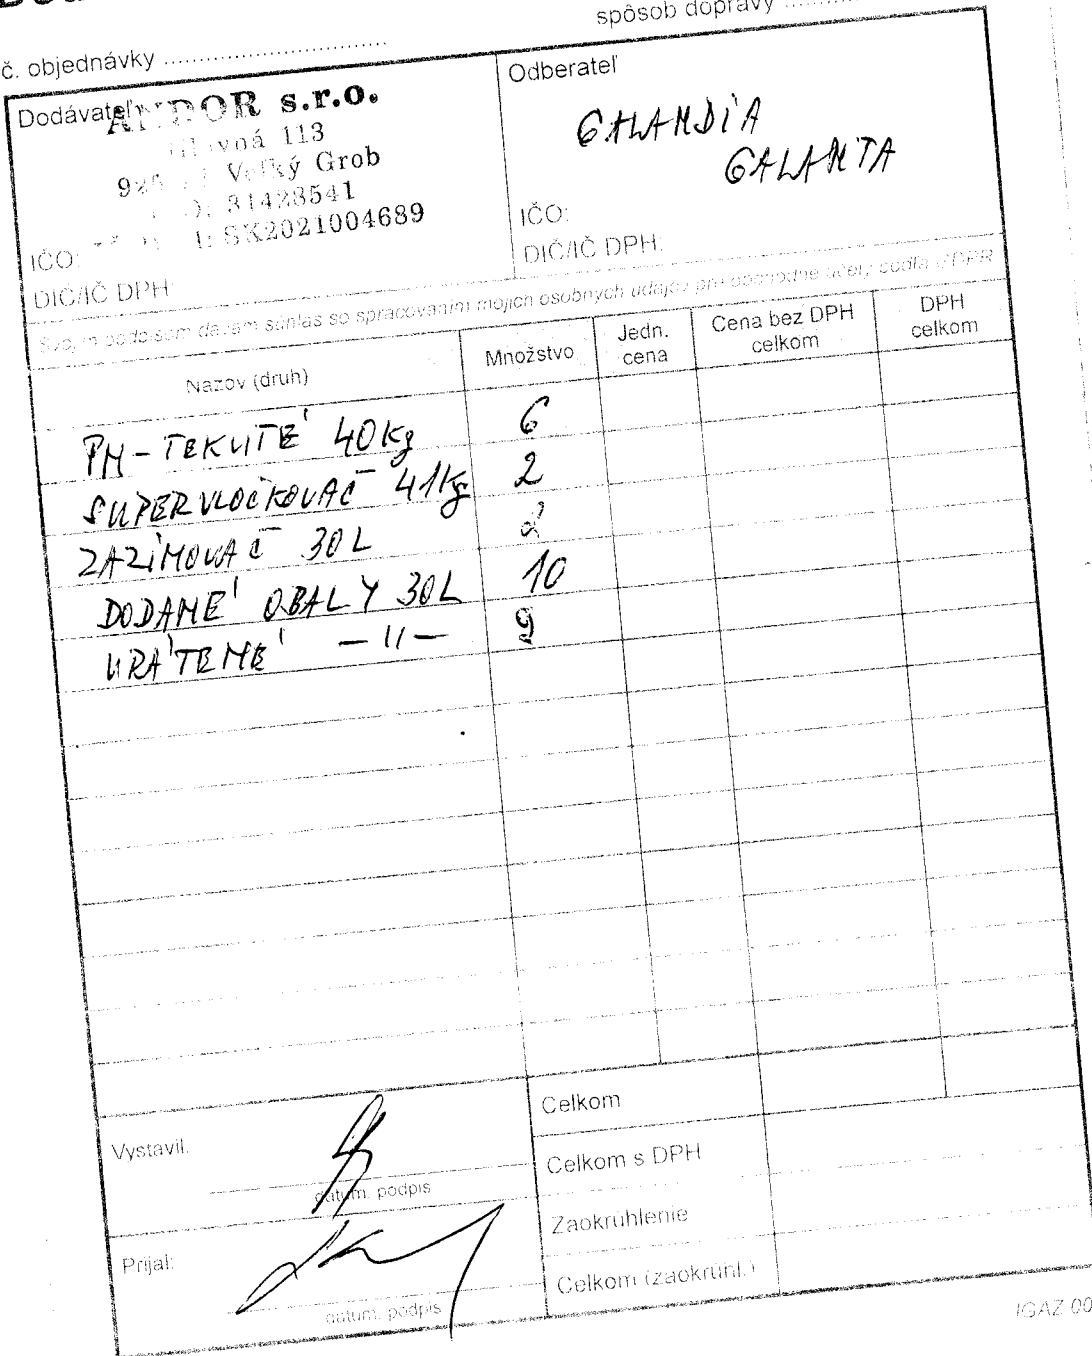 spôsob dopravy ..........
č. objednávky ..............................
Dodávateľ
ANDOR s.r.o.
Hlavná 113
925 Veľký Grob
31428541
SK2021004689
IČO:
DIČ/IČ DPH:
Odberateľ
GALANDIA
GALANTA
IČO:
DIČ/IČ DPH:
Svojim podpisom dávam súhlas so spracovaním mojich osobných údajov pre obchodné účely podľa GDPR
Názov (druh) Množstvo Jedn. cena Cena bez DPH celkom DPH celkom
PH-TEKUTÉ 40kg 6
SUPERVLOČKOVAČ 41kg 2
ZAZIMOVAČ 30L 2
DODANÉ OBALY 30L 10
VRÁTENÉ -11- 9
Celkom
Vystavil:
datum, podpis
Celkom s DPH
Zaokrúhlenie
Prijal:
datum, podpis
Celkom (zaokrúhl.)
IGAZ 00